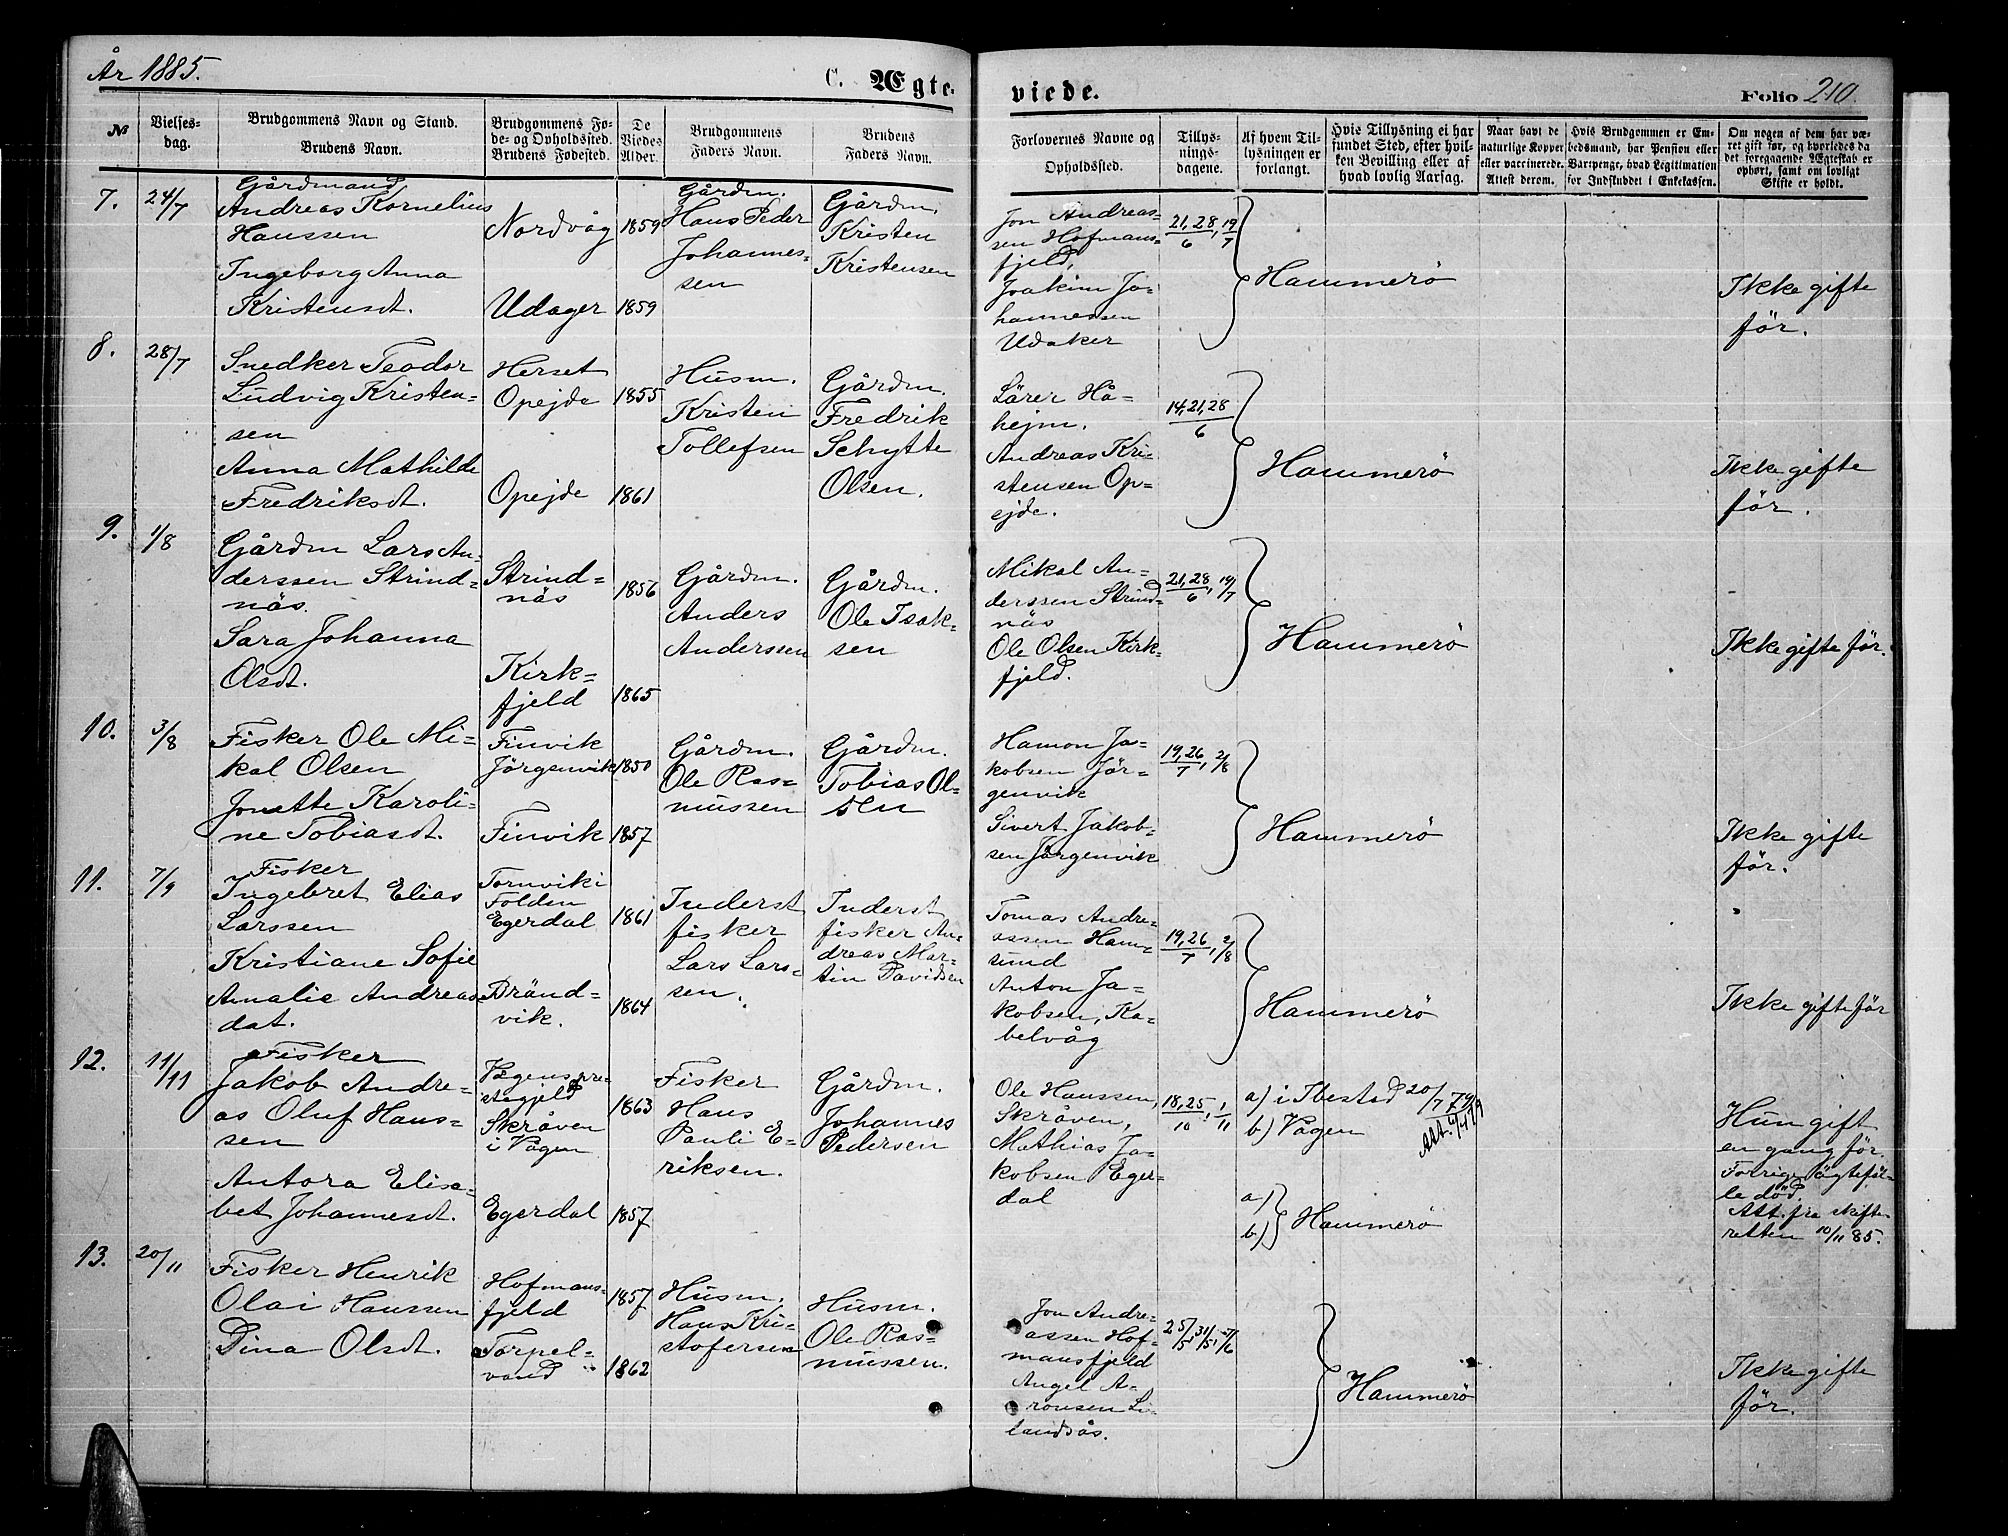 År 1885.
C. Ægte-
viede.
Folio 210.
№
Vielses-
dag.
Brudgommens Navn og Stand.
Brudens Navn.
Brudgommens Fø-
de- og Opholdssted.
Brudens Fødested.
De
Viedes
Alder.
Brudgommens
Faders Navn.
Brudens
Faders Navn.
Forlovernes Navne og
Opholdssted.
Tillys-
nings-
dagene.
Af hvem Til-
lysningen er
forlangt.
Hvis Tillysning ei har
fundet Sted, efter hvil-
ken Bevilling eller af
hvad lovlig Aarsag.
Naar havt de
naturlige Kopper
eller vaccinerede.
Attest derom.
Hvis Brudgommen er Em-
bedsmand, har Pension eller
Vartpenge, hvad Legitimation
for Indskuddet i Enkekassen.
Om nogen af dem har væ-
ret gift før, og hvorledes da
det foregaaende Ægteskab er
ophørt, samt om lovligt
Skifte er holdt.
7.
24/7
Gårdmand
Andreas Kornelius
Hanssen
Ingeborg Anna
Kristensdt.
Nordvåg
Udager
1859
1859
Gårdm.
Hans Peder
Johannes-
sen
Gårdm.
Kristen
Kristensen
Jon Andreas-
sen Hofmans-
fjeld,
Joakim Jo-
hannessen
Udaker
21,28/6, 19/7
Hammerö
Ikke gifte
för.
8.
28/7
Snedker Teodor
Ludvig Kristen-
sen
Anna Mathilde
Fredriksdt.
Herset
Opejde
Opejde
1855
1861
Husm.
Kristen
Tollefsen
Gårdm.
Fredrik
Schytte
Olsen.
Lärer Hå-
hejm.
Andreas Kri-
stensen Op-
ejde.
14,21,28/6
Hammerö
Ikke gifte
för.
9.
1/8
Gårdm Lars An-
derssen Strind-
näs.
Sara Johanna
Olsdt.
Strind-
näs
Kirk-
fjeld
1856
1865
Gårdm.
Anders
Anderssen
Gårdm.
Ole Isak-
sen
Mikal An-
derssen Strind-
näs
Ole Olsen Kirk-
fjeld.
21,28/6, 19/7
Hammerö
Ikke gifte för.
10.
3/8
Fisker Ole Mi-
kal Olsen
Jonette Karoli-
ne Tobiasdt.
Finvik
Jörgenvik
Finvik
1850
1857
Gårdm.
Ole Ras-
mussen
Gårdm.
Tobias Ol-
sen
Hamon Ja-
kobsen Jör-
genvik
Sivert Jakob-
sen Jörgenvik
19,26/7, 2/8
Hammerö
Ikke gifte
för.
11.
7/9
Fisker
Ingebret Elias
Larssen
Kristiane Sofie
Amalie Andreas-
dat.
Tornvik i
Folden
Egerdal
Bränd-
vik.
1861
1864
Inderst
fisker
Lars Lars-
sen.
Inderst
fisker An-
dreas Mar-
tin Davidsen
Tomas Andre-
assen Ham-
sund
Anton Ja-
kobsen, Ka-
belvåg
19,26/7, 2/8
Hammerö
Ikke gifte för
12.
11/11
Fisker
Jakob Andre-
as Oluf Hans-
sen
Antora Elisa-
bet Johannesdt.
Vågens pre-
stegjeld
Skråven
i Vågen
Egerdal
1863
1857
Fisker
Hans
Pauli E-
riksen.
Gårdm.
Johannes
Pedersen
Ole Hanssen,
Skråven,
Mathias Ja-
kobsen Eger-
dal
18,25/10, 1/11
a) i Ibestad 20/7 79
b) Vågen
a)
b) Hammerö
Hun gift
en gang för.
Forrige ägtefäl-
le död.
Att. fra skifte-
retten 10/11 85.
13.
20/11
Fisker Henrik
Olai Hanssen
Dina Olsdt.
Hofmans-
fjeld
Torpel-
vand
1857
1862
Husm.
Hans Kri-
stofersen
Husm.
Ole Ras-
mussen.
Jon Andre-
assen Hof-
mansfjeld
Angel A-
ronsen Li-
landsås.
25/5, 31/5,
Hammerö
Ikke gifte
för.